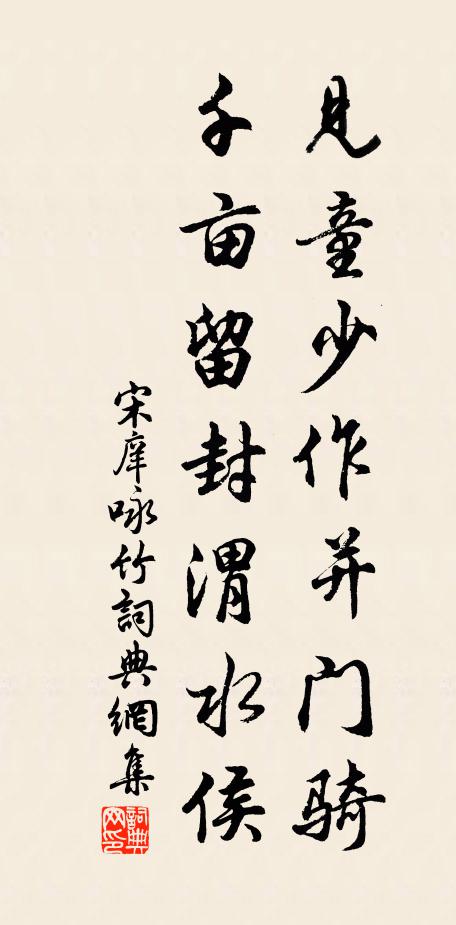 見童少作并门骑
千亩留封渭水侯
宋庠咏竹詞典網集
詞典
网印